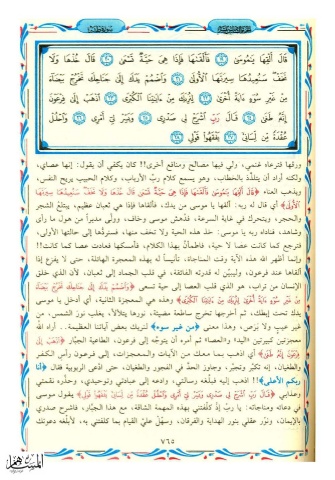 قَالَ أَلْقِهَا يَٰمُوسَىٰ ۝ فَأَلْقَىٰهَا فَإِذَا هِىَ حَيَّةٌ تَسْعَىٰ ۝ قَالَ خُذْهَا وَلَا
تَخَفْ سَنُعِيدُهَا سِيرَتَهَا ٱلْأُولَىٰ ۝ وَٱضْمُمْ يَدَكَ إِلَىٰ جَنَاحِكَ تَخْرُجْ بَيْضَآءَ
مِنْ غَيْرِ سُوٓءٍ ءَايَةً أُخْرَىٰ ۝ لِنُرِيَكَ مِنْ ءَايَٰتِنَا ٱلْكُبْرَى ۝ ٱذْهَبْ إِلَىٰ فِرْعَوْنَ
إِنَّهُۥ طَغَىٰ ۝ قَالَ رَبِّ ٱشْرَحْ لِى صَدْرِى ۝ وَيَسِّرْ لِىٓ أَمْرِى ۝ وَٱحْلُلْ
عُقْدَةً مِّن لِّسَانِى ۝ يَفْقَهُوا۟ قَوْلِى ۝
ورقها فترعاه غنمي، ولي فيها مصالح ومنافع أخرى!! كان يكفي أن يقول: إنها عصاي،
ولكنه أراد أن يتلذّذ بالخطاب، وهو يسمع كلام ربِّ الأرباب، وكلام الحبيب يريح النفس،
ويذهب العناء ﴿قَالَ أَلْقِهَا يَٰمُوسَىٰ فَأَلْقَىٰهَا فَإِذَا هِىَ حَيَّةٌ تَسْعَىٰ قَالَ خُذْهَا وَلَا تَخَفْ سَنُعِيدُهَا سِيرَتَهَا
ٱلْأُولَىٰ﴾ أي قال له ربه: ألقها يا موسى من يدك، فألقاها فإذا هي ثعبان عظيم، يبتلع الشجر
والحجر، ويتحرك في غاية السرعة، فدُهش موسى وخاف، وولّى مدبراً من هول ما رأى
وشاهد، فناداه ربه يا موسى: خذ هذه الحية ولا تخف منها، فسنردُّها إلى حالتها الأولى،
فترجع كما كانت عصا لا حية، فاطمأنَّ بهذا الكلام، فأمسكها فعادت عصا كما كانت!!
وإنما أظهر الله هذه الآية وقت المناجاة، تأنيساً له بهذه المعجزة الهائلة، حتى لا يفزع إذا
ألقاها عند فرعون، وليبيِّن له قدرته الفائقة، في قلب الجماد إلى ثعبان، لأن الذي خلق
الإنسان من تراب، هو الذي قلب العصا إلى حية تسعى ﴿وَٱضْمُمْ يَدَكَ إِلَىٰ جَنَاحِكَ تَخْرُجْ بَيْضَآءَ
مِنْ غَيْرِ سُوٓءٍ ءَايَةً أُخْرَىٰ لِنُرِيَكَ مِنْ ءَايَٰتِنَا ٱلْكُبْرَى﴾ وهذه هي المعجزة الثانية، أي أدخل يا موسى
يدك تحت إبطك، ثم أخرجها تخرج ساطعة مضيئة، نورها يتلألأ، يغلب نورَ الشمس، من
غير عيبٍ ولا بَرَص، وهذا معنى ﴿من غير سوء﴾ لنريك بعض آياتنا العظيمة.. أراد الله
معجزتين كبيرتين «اليد» و«العصا» ثم أمره أن يتوجّه إلى فرعون، الطاغية الجبّار ﴿ٱذْهَبْ إِلَىٰ
فِرْعَوْنَ إِنَّهُۥ طَغَىٰ﴾ أي اذهب بما معك من الآيات والمعجزات، إلى فرعون رأس الكفر
والطغيان، إنه تكبَّر وتجبَّر، وجاوز الحدَّ في الفجور والطغيان، حتى ادّعى الربوبية فقال ﴿أنا
ربكم الأعلى﴾!! اذهب إليه فبلّغه رسالتي، وادعه إلى عبادتي وتوحيدي، وحذّره نقمتي
وعذابي ﴿قَالَ رَبِّ ٱشْرَحْ لِى صَدْرِى وَيَسِّرْ لِىٓ أَمْرِى وَٱحْلُلْ عُقْدَةً مِّن لِّسَانِى يَفْقَهُوا۟ قَوْلِى﴾ يقول موسى
في دعائه ومناجاته: يا ربّ إذْ كلَّفتني بهذه المهمة الشاقة، مع هذا الجبّار، فاشرح صدري
بالإيمان، ونوّر عقلي بنور الهداية والفرقان، وسهّل عليَّ القيام بما كلفتني به، لأبلّغه دعوتك
٧٦٥